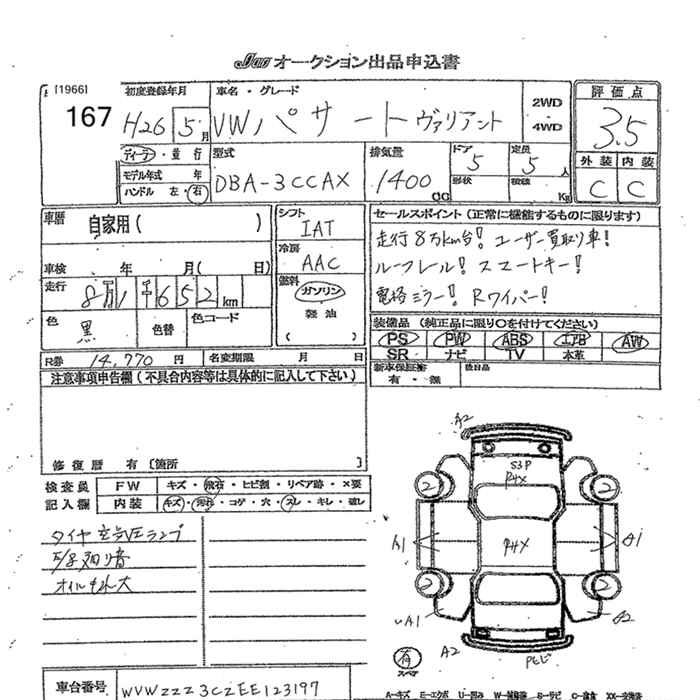 JAA オークション出品申込書
[1966]
167
初度登録年月
H26 5月
車名・グレード
VWパサートヴァリアント
2WD
4WD
評価点
3.5
外装 内装
C C
ディーラー・並行
モデル年式 年
ハンドル 左・右
型式
DBA-3CCAX
排気量
1400cc
ドア
5
形状
定員
5人
積載
Kg
車歴
自家用( )
車検 年 月( 日)
走行
8万1千652km
色
黒
色替
色コード
シフト
IAT
冷房
AAC
燃料
ガソリン
軽油
( )
セールスポイント(正常に機能するものに限ります)
走行8万km台! ユーザー買取り車!
ルーフレール! スマートキー!
電格ミラー! Rワイパー!
装備品 (純正品に限り〇を付けてください)
PS PW ABS エアB AW
SR ナビ TV 本革
新車保証書
有・無
後日品
R券 14,770円 名変期限 月 日
注意事項申告欄(不具合内容等は具体的に記入して下さい)
修復歴 有〔箇所
検査員
記入欄
FW キズ・飛石・ヒビ割・リペア跡・×要
内装 キズ・汚れ・コゲ・穴・スレ・キレ・破し
タイヤ空気圧ランプ
廻り音
オイルもれ大
A2
S3P
P4X
2 2
A1 P4X A1
2 2
A1 A2
A2 PとビI
有
スペア
車台番号
WVWZZZ3CZEE123197
A-キズ E-エクボ U-凹み W-補修跡 S-サビ C-腐食 XX-交換済